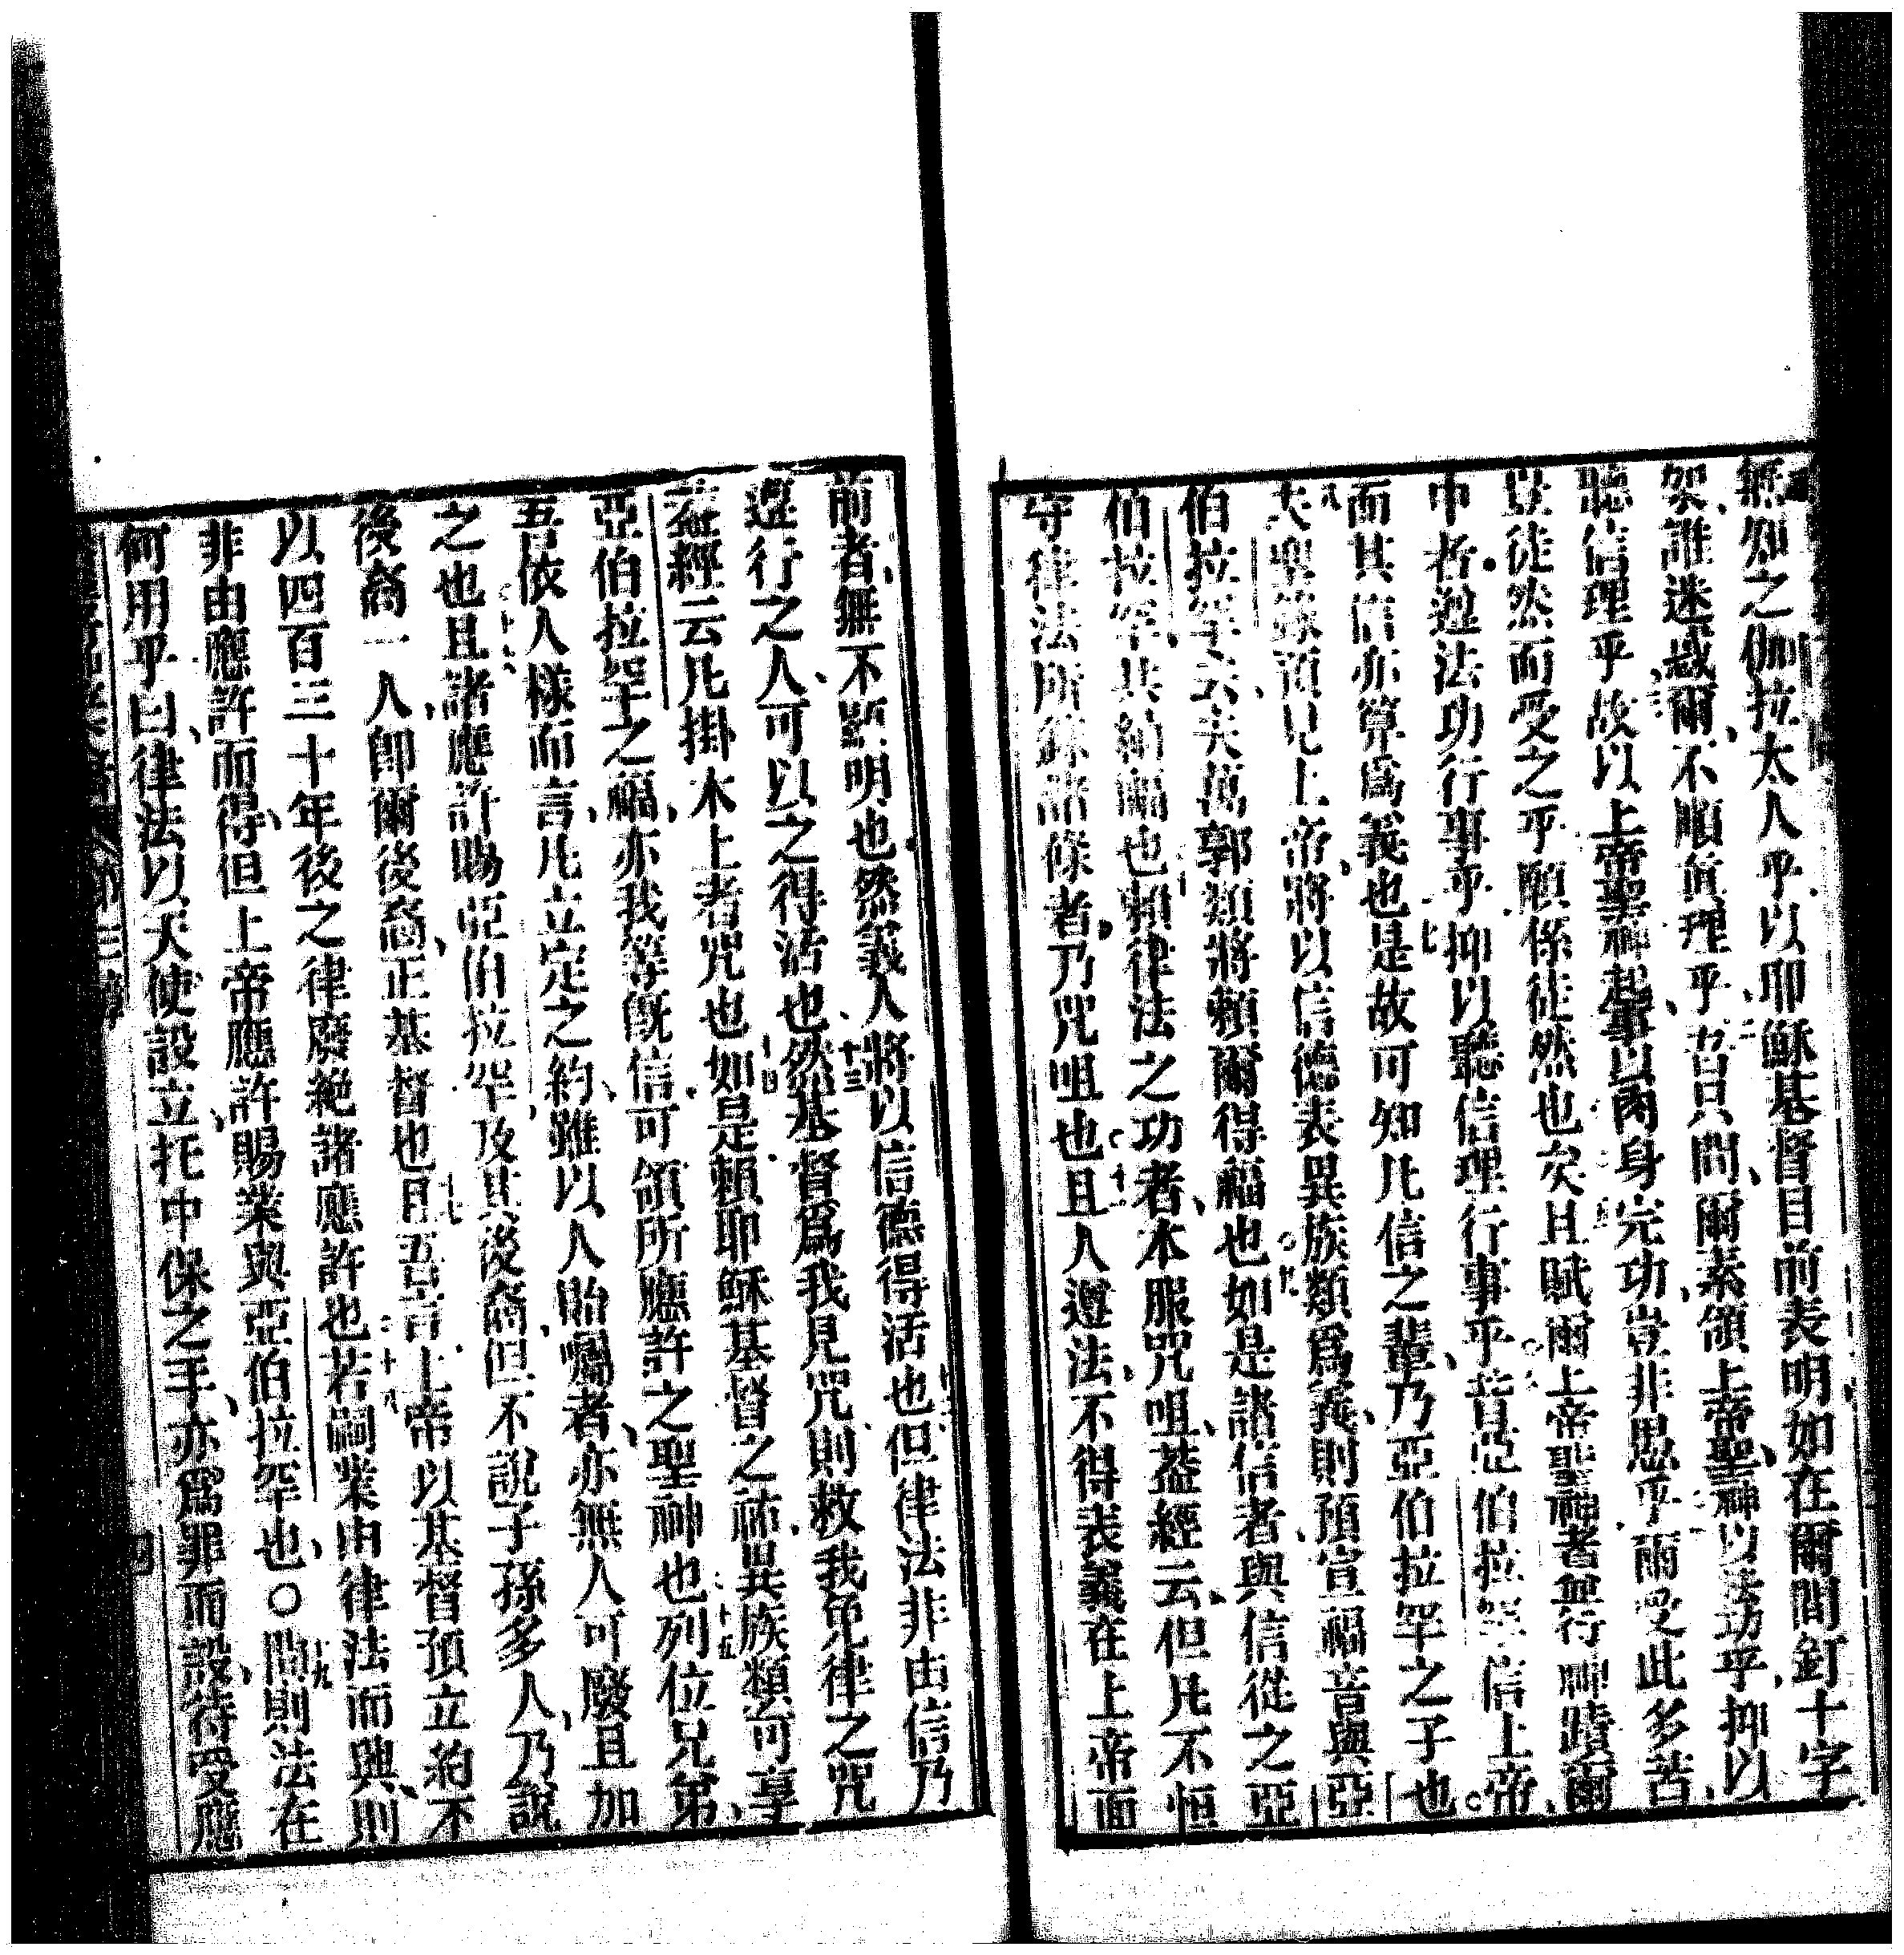 無知之伽拉太人乎以耶穌基督目前表明如在爾間釘十字
架誰迷惑爾不順眞理乎吾只問爾素領上帝聖神以法功乎抑以
聽信理乎故以上帝聖神起事以肉身完功豈非愚乎爾受此多苦
豈徒然而受之乎願係徒然也矣且賦爾上帝聖神者並行神蹟爾
中者遵法功行事乎抑以聽信理行事乎昔亞伯拉罕信上帝
而其信亦算爲義也是故可知凡信之輩乃亞伯拉罕之子也
夫聖錄預見上帝將以信德表異族類爲義則預宣福音與亞
伯拉罕云夫萬郭類將賴爾得福也如是諸信者與信從之亞
伯拉罕共納福也賴律法之功者本服咒咀葢經云但凡不恒
守律法所錄諸條者乃咒咀也且人遵法不得表義在上帝面
前者無不顯明也然義人將以信德得活也但律法非由信乃
遵行之人可以之得活也然基督爲我見咒則救我免律之咒
葢經云凡掛木上者咒也如是賴耶穌基督之祐異族類可享
亞伯拉罕之福亦我等旣信可領所應許之聖神也列位兄弟
吾依人樣而言凡立定之約雖以人貽囑者亦無人可廢且加
之也且諸應許賜亞伯拉罕及其後裔但不說子孫多人乃說
後裔一人卽爾後裔正基督也且吾言上帝以基督預立約不
以四百三十年後之律廢絶諸應許也若嗣業由律法而與則
非由應許而得但上帝應許賜業與亞伯拉罕也○問則法在
何用乎曰律法以天使設立托中保之手亦爲罪而設待受應